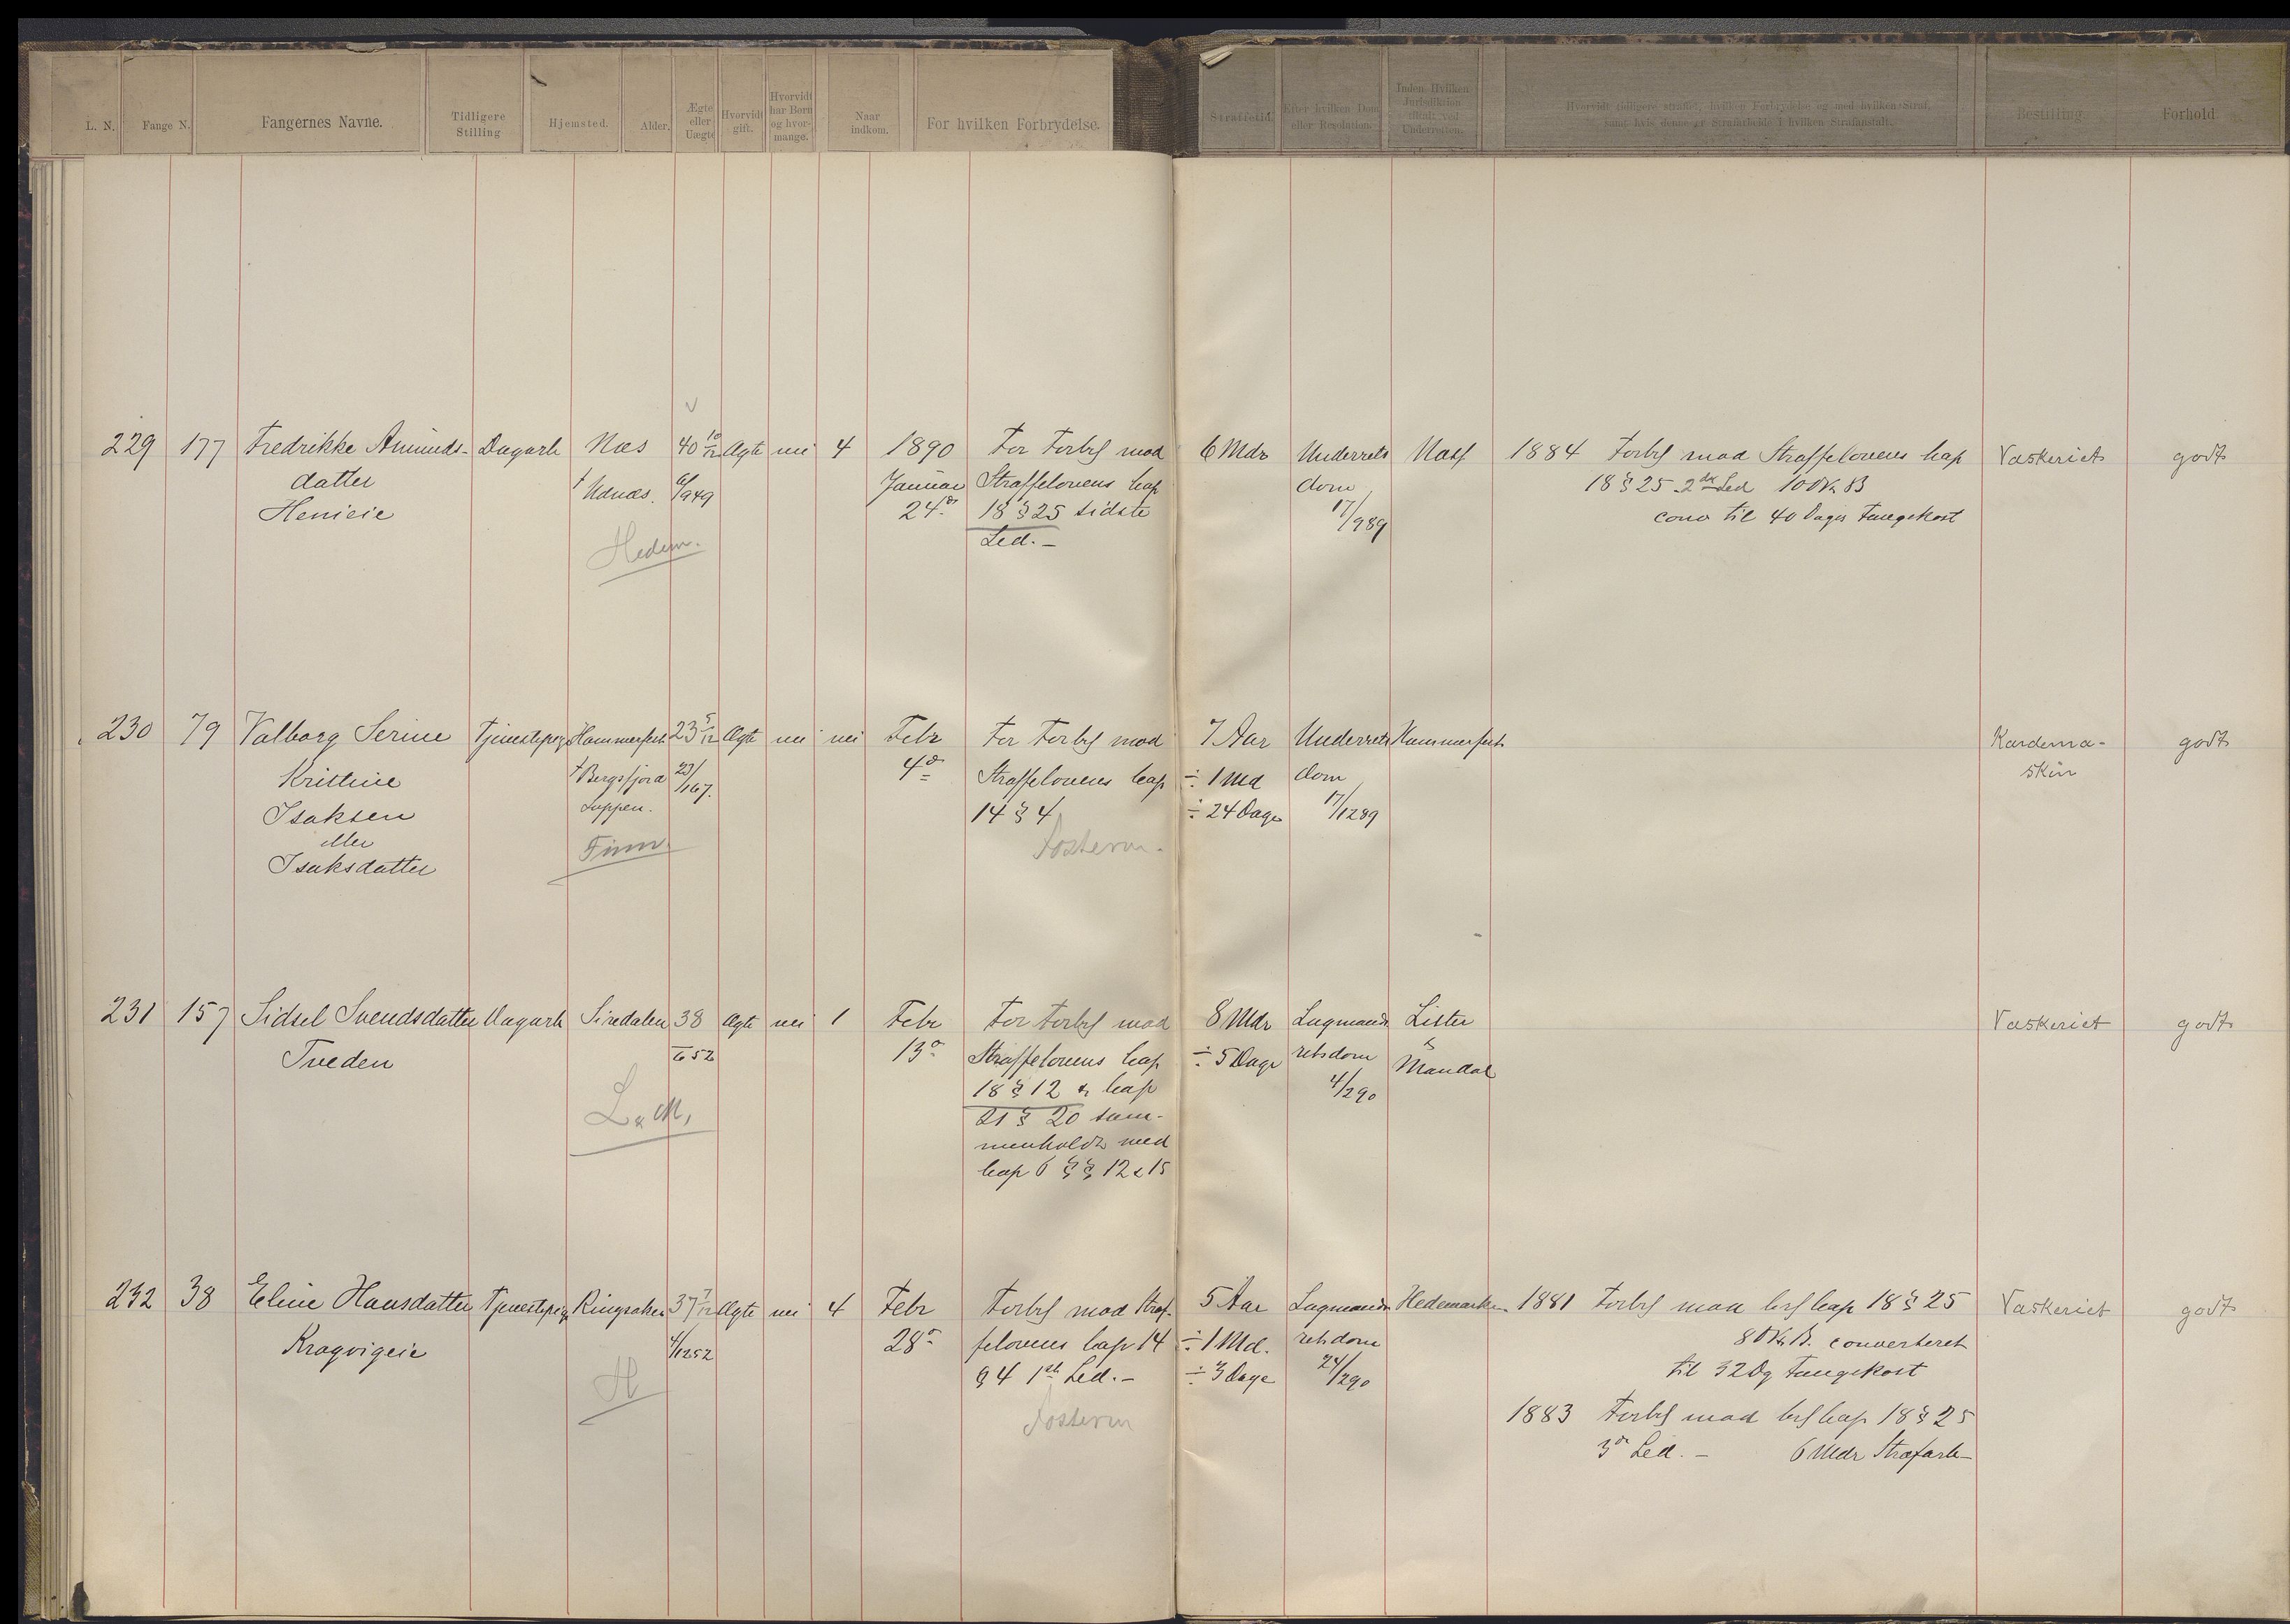 L. N.
Fange N.
Fangernes Navne.
Tidligere
Stilling
Hjemsted.
Alder.
Ægte
eller
Uægte
Hvorvidt
gift.
Hvorvidt
har Børn
og hvor-
mange.
Naar
indkom.
For hvilken Forbrydelse.
Straffetid.
Efter hvilken Dom
eller Resolution.
Inden Hvilken
Jurisdiktion
tiltalt ved
Underretten.
Hvorvidt tidligere straffet, hvilken Forbrydelse og med hvilken Straf,
samt hvis denne er Strafarbeide i hvilken Strafanstalt.
Bestilling.
Forhold
229 177 Fredrikke Amunds- Dagarb Næs 40 10/12 Ægte nei 4 1890 For Forbr mod 6 Mdr Underrets 1884 Forbr mod Straffelovens Cap Vaskeriet godt
datter Udnæs. 6/949 Januar Straffelovens Cap dom 18 § 25 2det Led 100 Kr B
Henieie 24de 18 § 25 sidste 17/989 conv til 40 Dages Fængskost
Hedem. Led. —
230 79 Valborg Serine Tjenestepige Hammerfest 23 5/12 Ægte nei nei Febr For Forbr mod 7 Aar Underrets Hammerfest Kardema- godt
Kristine Bergsfjord 23/167. 4de Straffelovens Cap ÷ 1 Md dom skin
Isaksen Loppen. 14 § 4 ÷ 24 Dage 17/1289
eller Finm. Fosterm.
Isaksdatter
231 157 Sidsel Svendsdatter Dagarb Siredalen 38 Ægte nei 1 Febr For Forbr mod 8 Mdr Lagmands Lister Vaskeriet godt
Tveden 52 13de Straffelovens Cap ÷ 5 Dage retsdom & Mandal
L. & M. 18 § 12 & Cap 4/290
21 § 20 sam-
menholdt med
Cap 6 §§ 12 & 15
232 38 Eline Hansdatter Tjenestepige Ringsaker 37 7/12 Ægte nei 4 Febr Forbr mod Straf- 5 Aar Lagmands Hedemarken 1881 Forbr mod Lov Cap 18 § 25 Vaskeriet godt
Kragvigeie 4/1252 28de felovens Cap 14 ÷ 1 Md. retsdom 80 Kr B. converteret
H § 4 1ste Led. — ÷ 3 Dage 24/290 til 32 Dg Fængskost
Fosterm 1883 Forbr mod Lov Cap 18 § 25
3de Led. — 6 Mdr Strafarb —